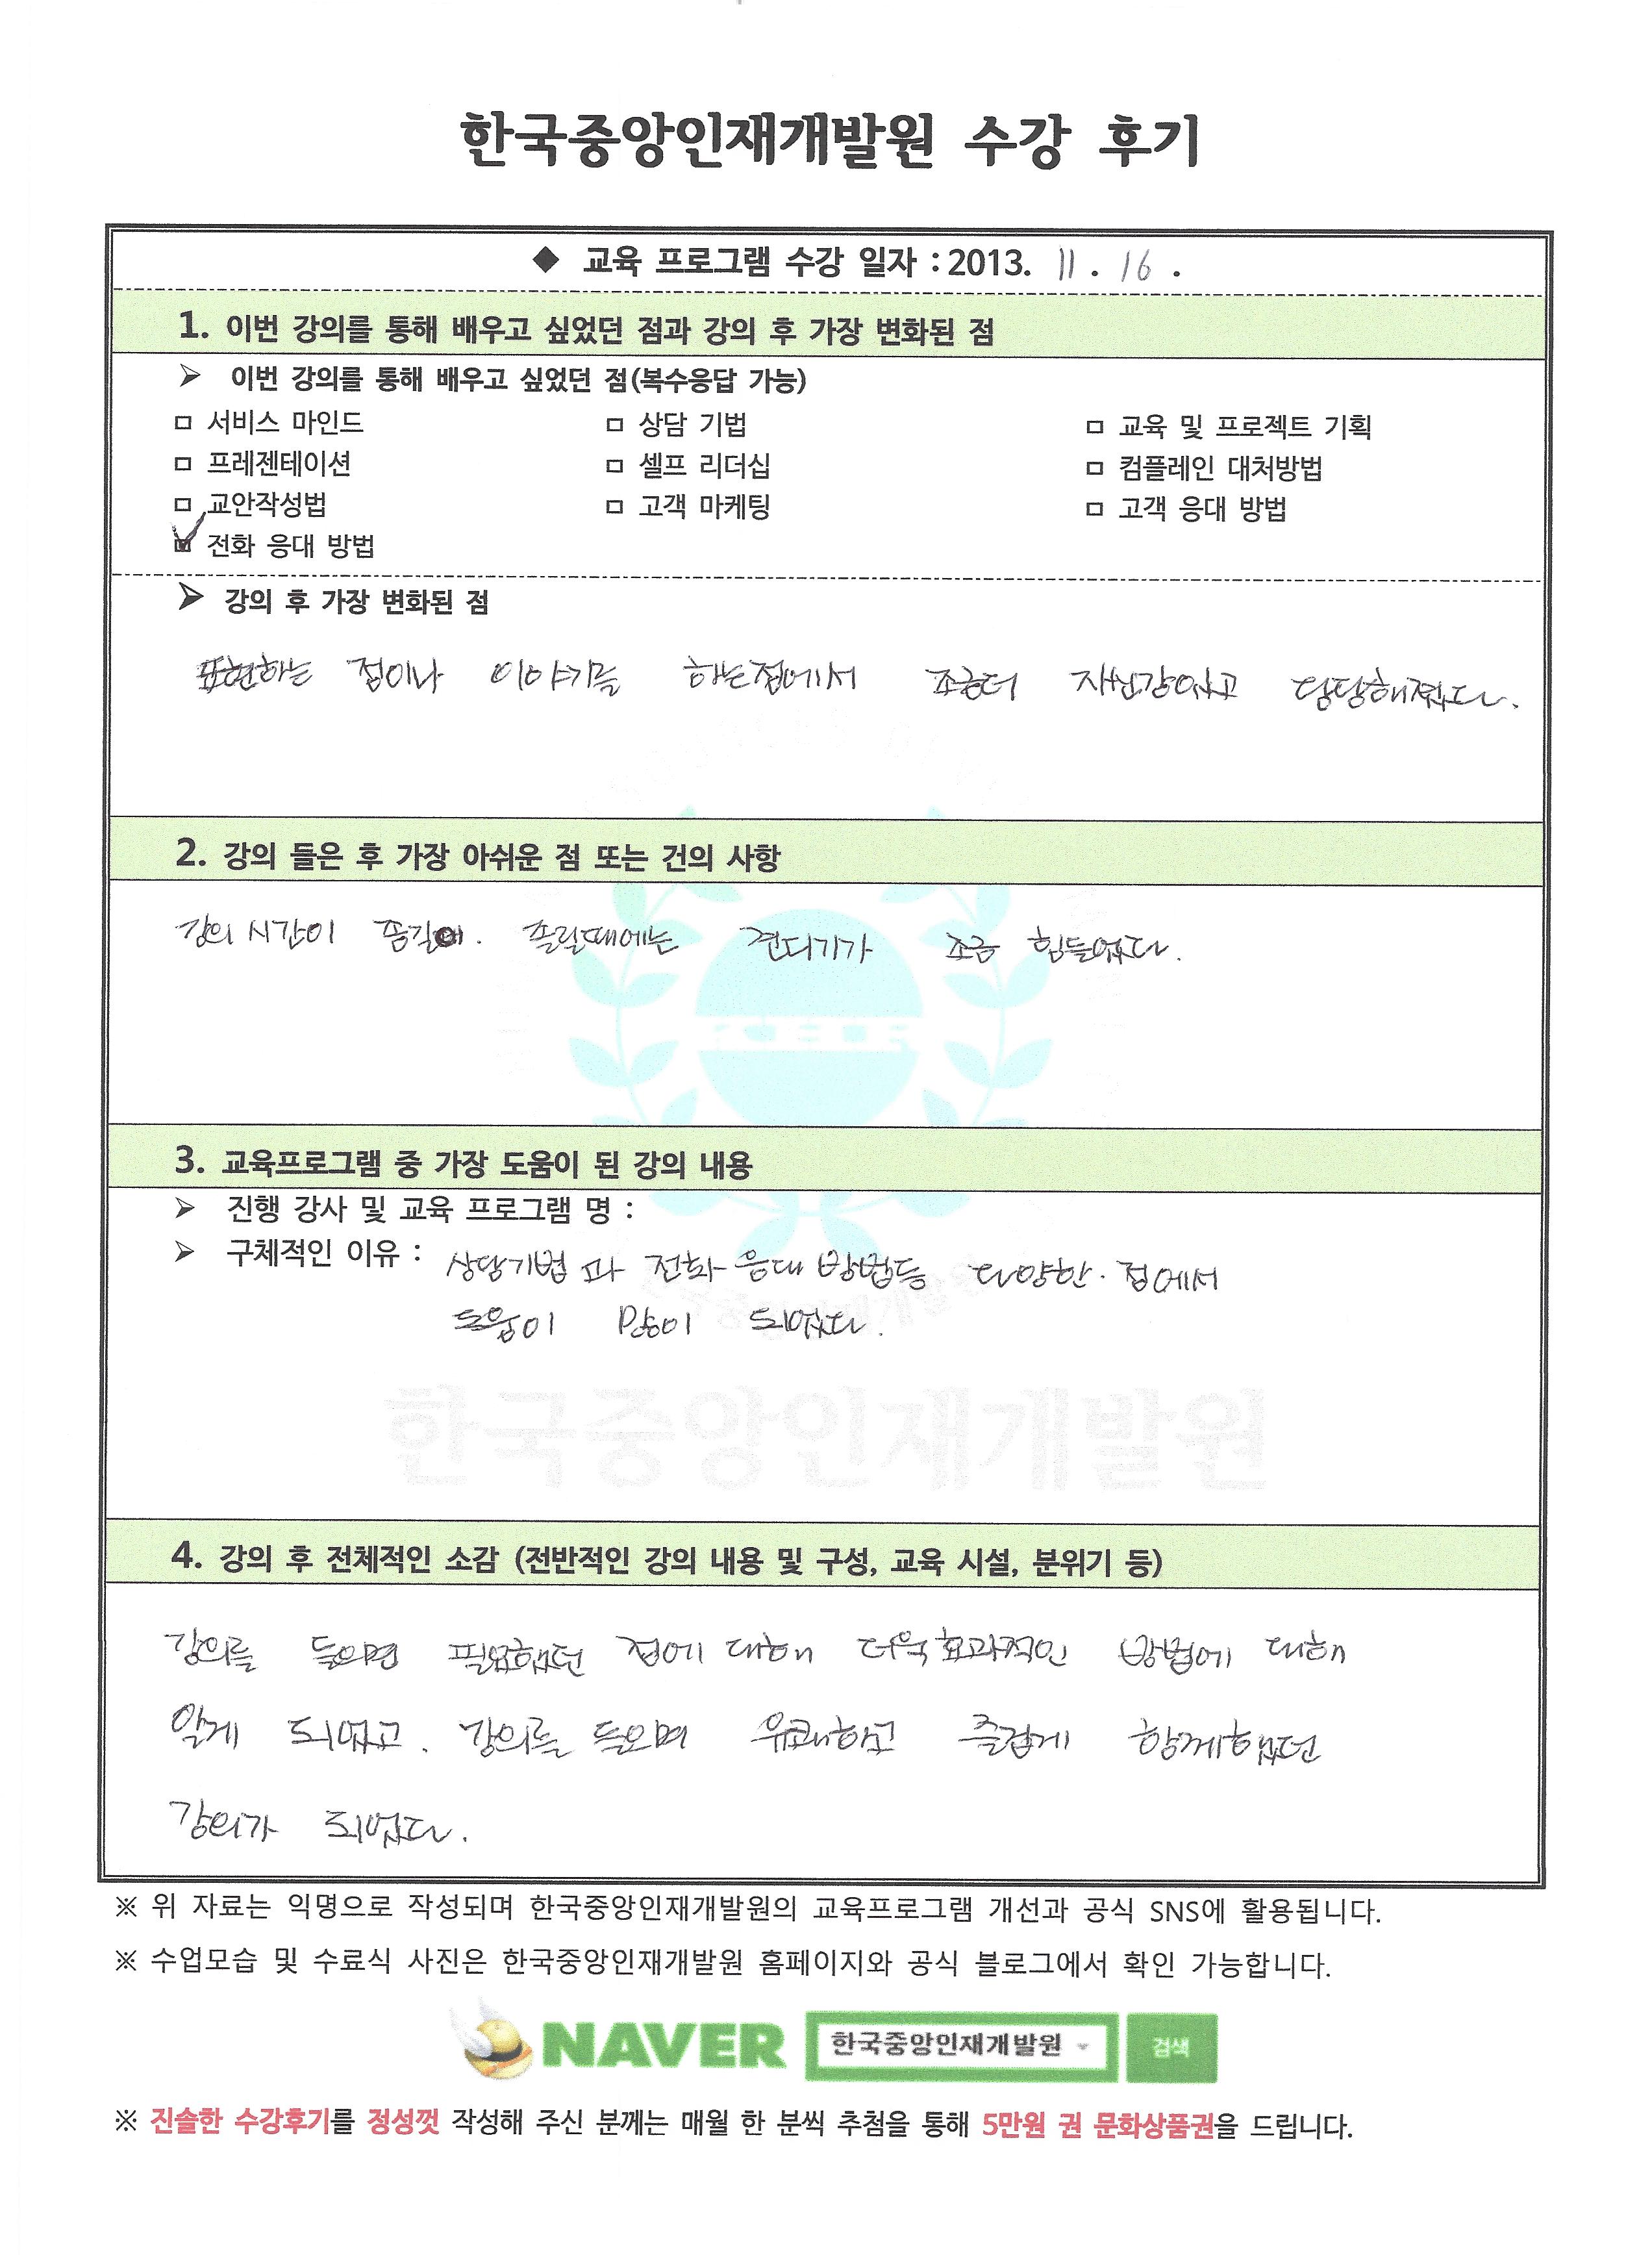 한국중앙인재개발원 수강 후기
◆ 교육 프로그램 수강 일자 : 2013. 11 . 16 .
1. 이번 강의를 통해 배우고 싶었던 점과 강의 후 가장 변화된 점
➢ 이번 강의를 통해 배우고 싶었던 점(복수응답 가능)
□ 서비스 마인드 □ 상담 기법 □ 교육 및 프로젝트 기획
□ 프레젠테이션 □ 셀프 리더십 □ 컴플레인 대처방법
□ 교안작성법 □ 고객 마케팅 □ 고객 응대 방법
☑ 전화 응대 방법
➢ 강의 후 가장 변화된 점
표현하는 점이나 이야기를 하는점에서 조금더 자신감있고 당당해졌다.
2. 강의 들은 후 가장 아쉬운 점 또는 건의 사항
강의 시간이 좀길어. 졸릴때에는 견디기가 조금 힘들었다.
3. 교육프로그램 중 가장 도움이 된 강의 내용
➢ 진행 강사 및 교육 프로그램 명 :
➢ 구체적인 이유 : 상담기법과 전화 응대 방법등 다양한 점에서
도움이 많이 되었다.
한국중앙인재개발원
4. 강의 후 전체적인 소감 (전반적인 강의 내용 및 구성, 교육 시설, 분위기 등)
강의를 들으면 필요했던 점에 대해 더욱 효과적인 방법에 대해
알게 되었고. 강의를 들으며 유쾌하고 즐겁게 함께했던
강의가 되었다.
※ 위 자료는 익명으로 작성되며 한국중앙인재개발원의 교육프로그램 개선과 공식 SNS에 활용됩니다.
※ 수업모습 및 수료식 사진은 한국중앙인재개발원 홈페이지와 공식 블로그에서 확인 가능합니다.
NAVER 한국중앙인재개발원 검색
※ 진솔한 수강후기를 정성껏 작성해 주신 분께는 매월 한 분씩 추첨을 통해 5만원 권 문화상품권을 드립니다.